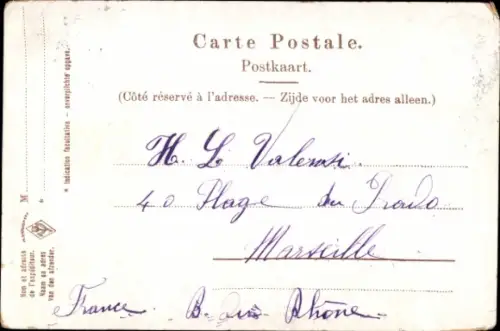 Carte Postale.
Postkaart.
(Côté réservé à l'adresse. — Zijde voor het adres alleen.)
H. L. Valensi.
40 Plage du Prado
Marseille
France B. du Rhône
* Indication facultative — onverplichte opgave.
M
*
Nom et adresse
de l'expéditeur.
Naam en adres
van den afzender.